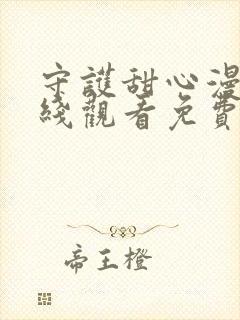 守護甜心漫
綫觀看免費
帝王橙